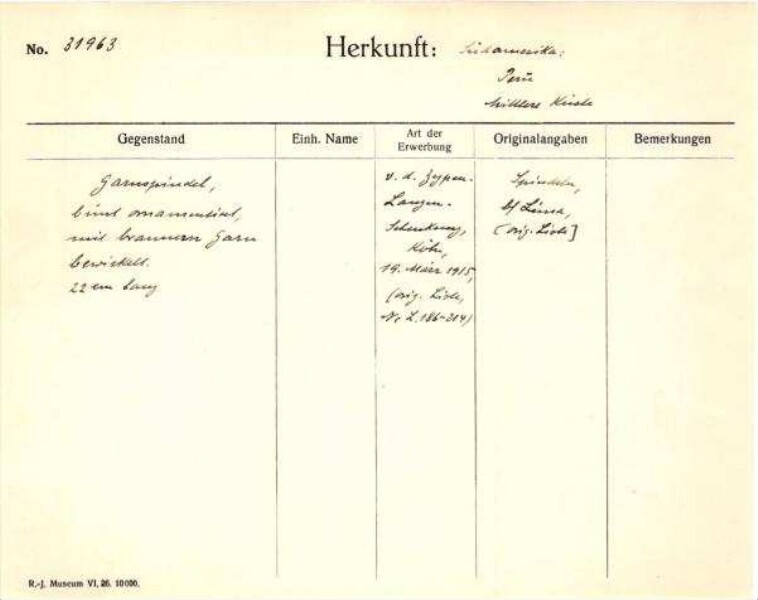 No. 31963
Herkunft: Südamerika:
Perū
Mittlere Küste
Gegenstand
Einh. Name
Art der
Erwerbung
Originalangaben
Bemerkungen
Garnspindel,
bunt ornamentiert,
mit braunem Garn
bewickelt.
22 cm lang
v. d. Zypen-
Langen-
Schenkung,
Köln,
19. März 1915,
(orig. Liste,
186-214)
Spindeln,
b/ Lima,
[orig. Liste]
R.-J. Museum VI, 26. 10000.